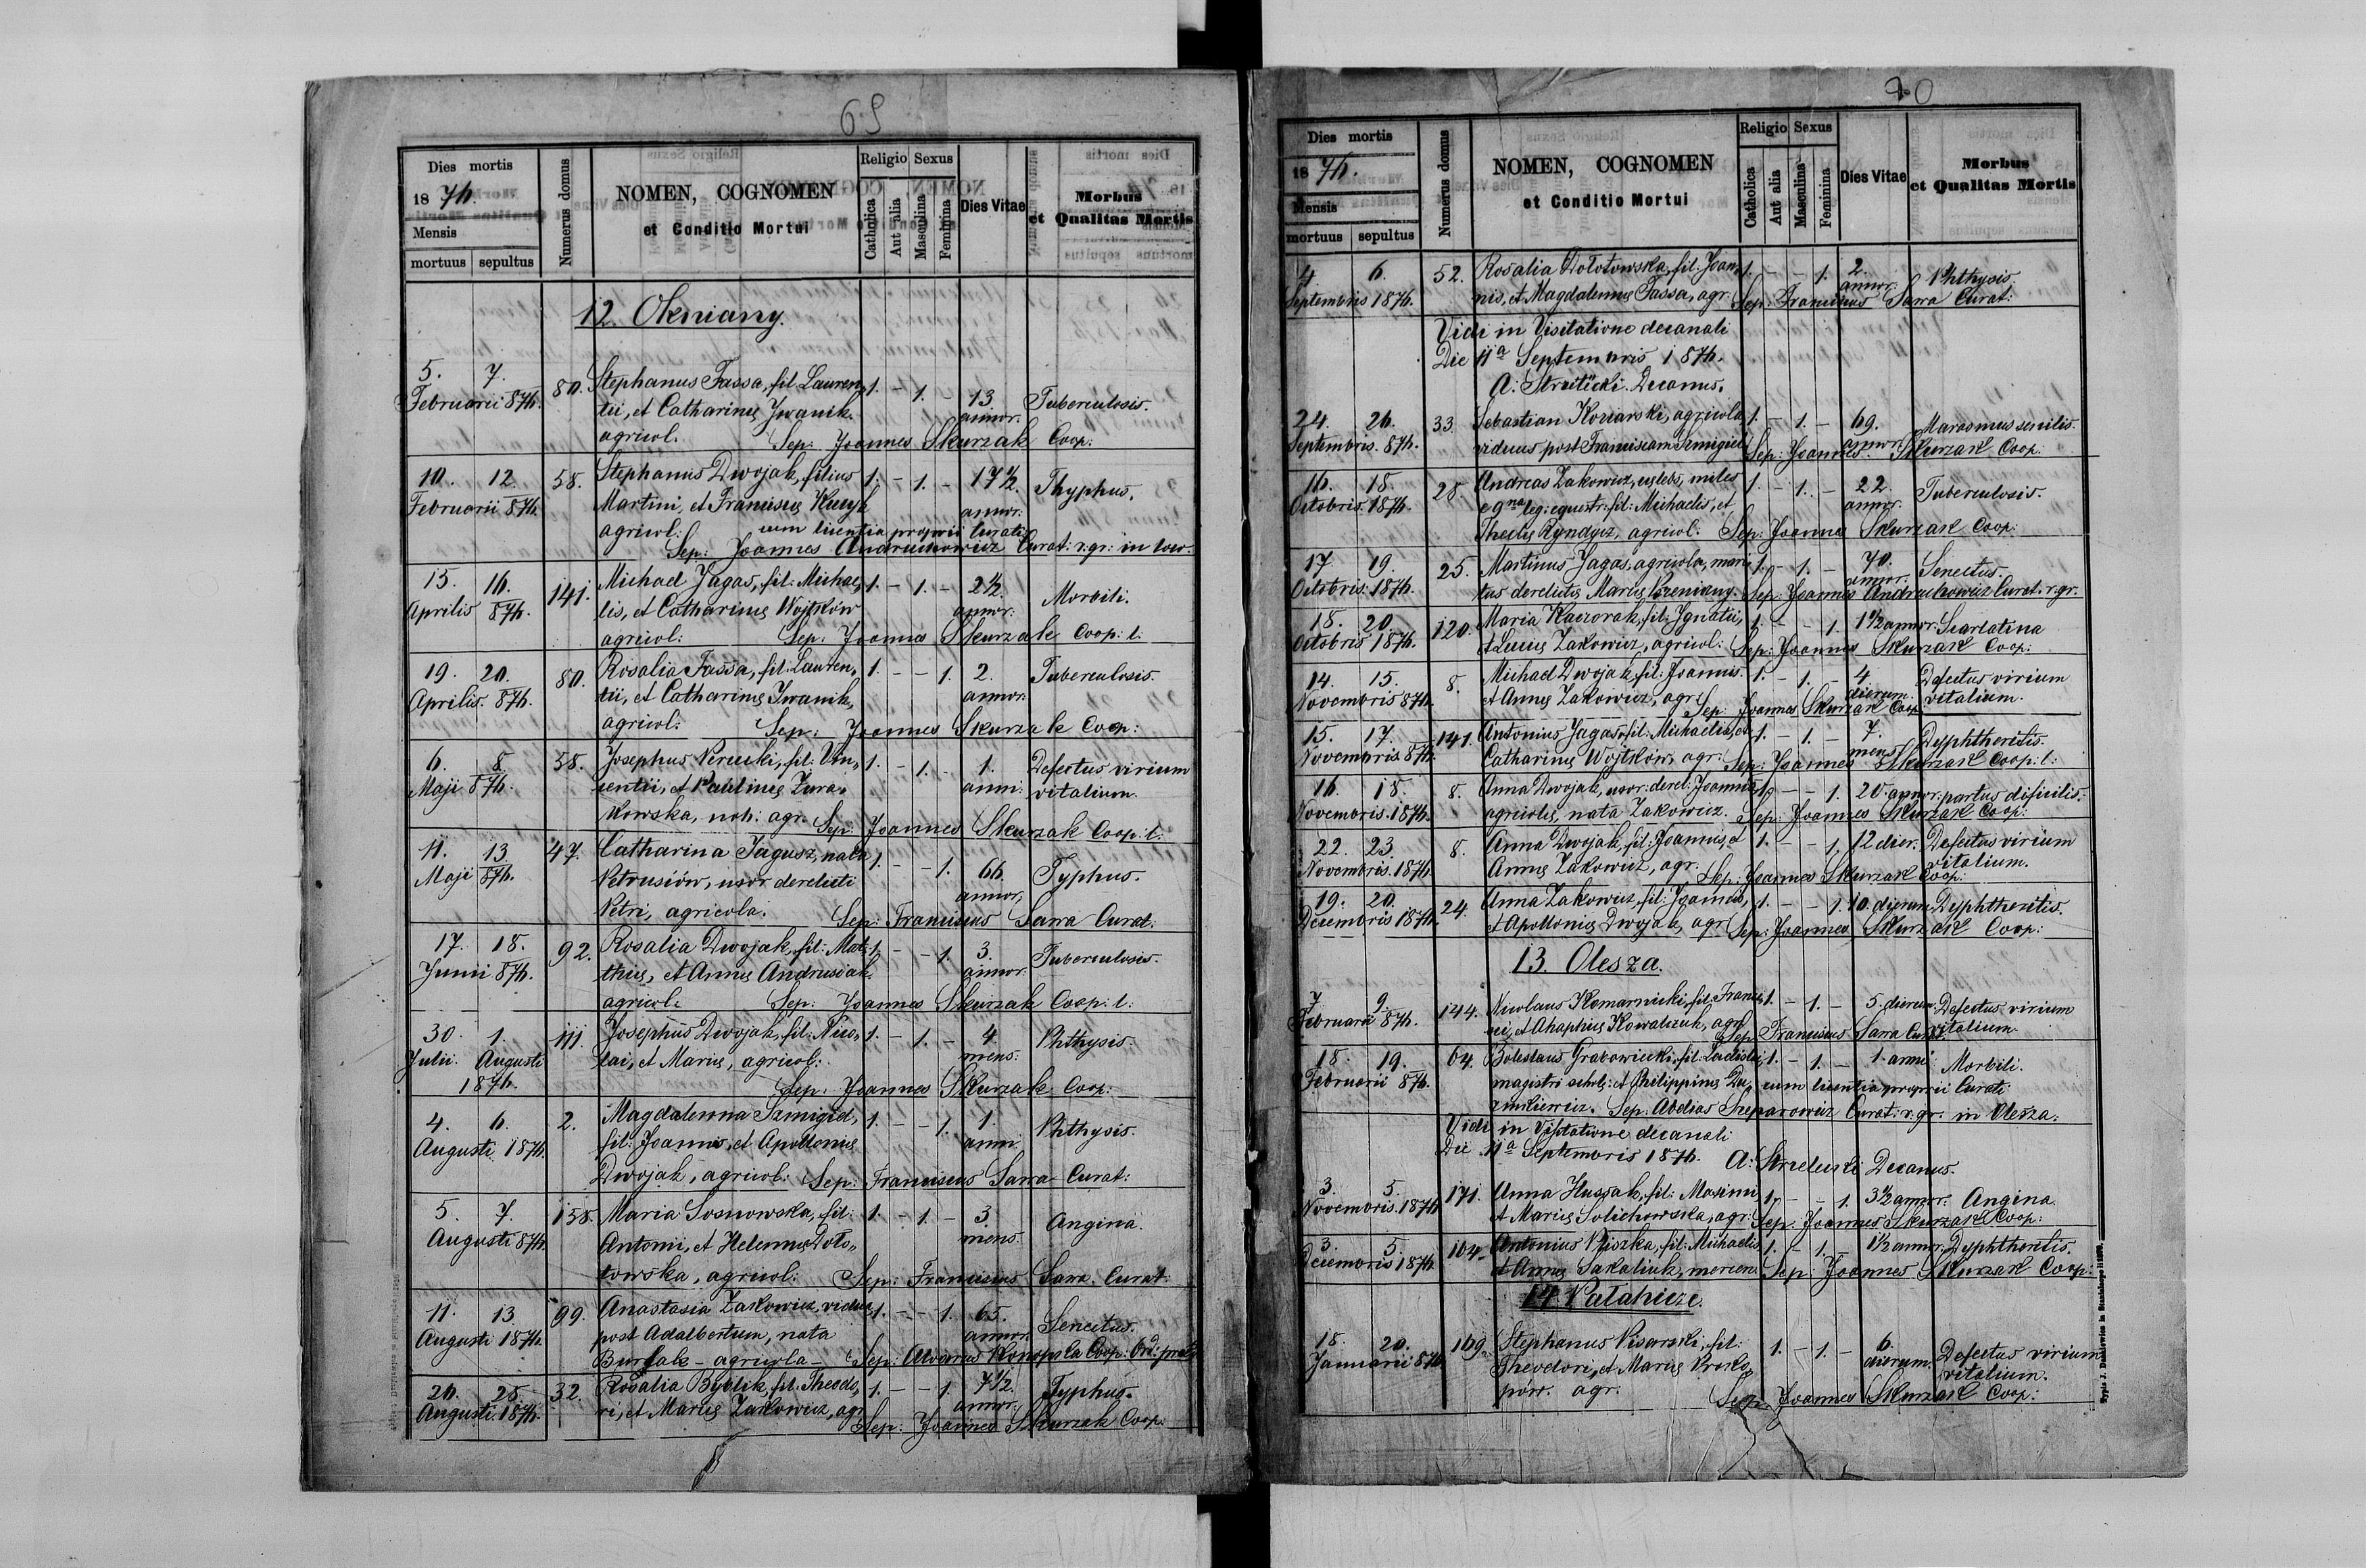 69
Dies mortis
1876.
Mensis
mortuus sepultus
Numerus domus
NOMEN, COGNOMEN
et Conditio Mortui
Religio Sexus
Catholica
Aut alia
Masculina
Feminina
Dies Vitae
Morbus
et Qualitas Mortis
12. Okniany.
5. 7. Februarii 876. 80. Stephanus Fassa, fil. Lauren, 1. - 1. - 13 Tuberculosis.
tii, et Catharinę Iwanik. annor.
agricol. Sep: Joannes Skurzak Coop:
10. 12. Februarii 876. 58. Stephanus Dwojak, filius 1. - 1. - 17½ Thyphus.
Martini, et Franciscę annor:
agricol: cum licentia proprii Curati
Sep: Joannes Andruchowicz Curat: r. gr: in
15. 16. Aprilis 876. 141. Michael Jagas, fil: Michae, 1. - 1. - 2½ Morbili.
lis, et Catharinę Wojtków annor:
agricol: Sep: Joannes Skurzak Coop: l.
19. 20. Aprilis 876. 80. Rosalia Fassa, fil: Lauren, 1. - - 1. 2. Tuberculosis.
tii, et Catharinę Iwanik, annor:
agricol: Sep: Joannes Skurzak Coop:
6. 8. Maji 876. 58. Josephus Nerucki, fil: Vin, 1. - 1. - 1. Defectus virium
centii, et Paulinę Żura, anni: vitalium.
kowska, nob: agr. Sep: Joannes Skurzak Coop: l.
11. 13. Maji 876. 47. Catharina Jagusz, nata 1. - - 1. 66 Typhus.
Petrusiów, uxor derelicti annor,
Petri, agricola. Sep: Franciscus Sarra Curat:
17. 18. Junii 876. 92. Rosalia Dwojak, fil: Mat, 1. - - 1. 3. Tuberculosis.
thię, et Annę Andrusiak annor:
agricol: Sep: Joannes Skurzak Coop: l.
30. 1. Julii. Augusti 1876. 111. Josephus Dwojak, fil: Nico, 1. - 1. - 4 Phthysis.
lai, et Marię, agricol: mens:
Sep: Joannes Skurzak Coop:
4. 6. Augusti 1876. 2. Magdalenna Szmigiel, 1. - - 1. 1. Phthysis.
fil: Joannis, et Apollonię anni
Dwojak, agricol: Sep: Franciscus Sarra Curat:
5. 7. Augusti 876. 158. Maria Sosnowska, fil: 1. - 1. - 3. Angina.
Antonii, et Helennę Doło, mens:
towska, agricol: Sep: Franciscus Sarra. Curat:
11. 13. Augusti 1876. 99. Anastasia Żakowicz, vidua 1. - - 1. 65. Senectus.
post Adalbertum, nata annor.
agricola - Sep: Alvarus Konopka Coop:
26. 28. Augusti 1876. 32. Rosalia Bydlik, fil: Theodo, 1. - - 1. 7½. Typhus.
ri, et Marię Żakowicz, agr annor.
Sep: Joannes Skurzak Coop:
70
Dies mortis
1876.
Mensis
mortuus sepultus
Numerus domus
NOMEN, COGNOMEN
et Conditio Mortui
Religio Sexus
Catholica
Aut alia
Masculina
Feminina
Dies Vitae
Morbus
et Qualitas Mortis
4 6. Septembris 1876. 52. Rosalia Dołotowska, fil: Joan, 1. - - 1. 2. Phthysis.
nis, et Magdalennę Fassa, agr. annor. Sep: Franciscus Sarra Curat:
Vidi in Visitatione decanali
Die 11a Septembris 1876.
A: Strzelecki. Decanus.
24. 26. Septembris 876. 33. Sebastian Kozłarski, agricola 1. - 1. - 69. Marasmus senilis.
viduus post Franciscam Szmigiel annor. Sep: Joannes Skurzak Coop:
16. 18. Octobris 1876. 28. Andreas Żakowicz, cęlebs, miles 1. - 1. - 22. Tuberculosis.
leg: equestr: fil: Michaelis, et annor.
Theclę Ryndycz, agricol: Sep: Joannes Skurzak Coop:
17. 19. Octobris 1876. 25. Martinus Jagas, agricola, mari, 1. - 1. - 70. Senectus.
tus derelictę Marię annor. Sep: Joannes Andruchowicz Curat. r. gr.
18. 20. Octobris 1876. 120. Maria Kaczorak, fil: Ignatii, 1. - - 1. 1½ annor. Scarlatina
et Lucię Żakowicz, agricol: Sep: Joannes Skurzak Coop:
14. 15. Novembris 876. 8. Michael Dwojak, fil: Joannis 1. - 1. - 4 Defectus virium
et Annę Żakowicz, agr. dierum. vitalium.
Sep: Joannes Skurzak Coop:
15. 17. Novembris 876. 141. Antonius Jagas, fil: Michaelis, et 1. - 1. - 7. Dyphtheritis.
Catharinę Wojtków, agr. mens. Sep: Joannes Skurzak Coop: l:
16. 18. Novembris 1876. 8. Anna Dwojak, uxor: derel: Joannis 1. - - 1. 20. annor. partus dificilis.
agricolę, nata Żakowicz. Sep: Joannes Skurzak Coop:
22. 23. Novembris 1876. 8. Anna Dwojak, fil: Joannis, et 1. - - 1. 12 dier. Defectus virium
Annę Żakowicz, agr. vitalium.
Sep: Joannes Skurzak Coop:
19. 20. Decembris 1876. 24. Anna Żakowicz, fil: Joannis, 1. - - 1. 10. dierum Dyphtheritis.
et Apollonię Dwojak, agr Sep: Joannes Skurzak Coop:
13. Olesza.
7. 9. Februarii 876. 144. Nicolaus Komarnicki, fil: Francis, 1. - 1. - 5. dierum. Defectus virium
ci, et Ahaphię Kowalczuk, agr vitalium.
Sep: Franciscus Sarra Curat:
18. 19. Februarii 876. 64. Boleslaus Grabowiecki, fil: Ladislai, 1. - 1. - 1. anni Morbili.
magistri scholę: et Philippinę Du, cum licentia proprii Curati
nikiewicz. Sep: Abdias Szeparowicz Curat: r. gr. in Olesza.
Vidi in Visitatione decanali
Die 11a Septembris 1876. A: Strzelecki Decanus.
3. 5. Novembris 1876 171. Anna Hussak, fil: Maximi 1. - - 1. 3½ annor. Angina.
et Marię Solichowska, agr: Sep: Joannes Skurzak Coop:
3. 5. Decembris 1876 164. Antonius Kiszka, fil: Michaelis 1. - 1. - 1½ annor. Dyphtheritis.
et Annę Sakaliuk, mercen: Sep: Joannes Skurzak Coop:
14. Pałahicze.
18. 20. Januarii 876 169. Stephanus Pisarski, fil: 1. - 1. - 6. Defectus virium
Theodori, et Marię Proko, dierum. vitalium.
pów. agr. Sep: Joannes Skurzak Coop: